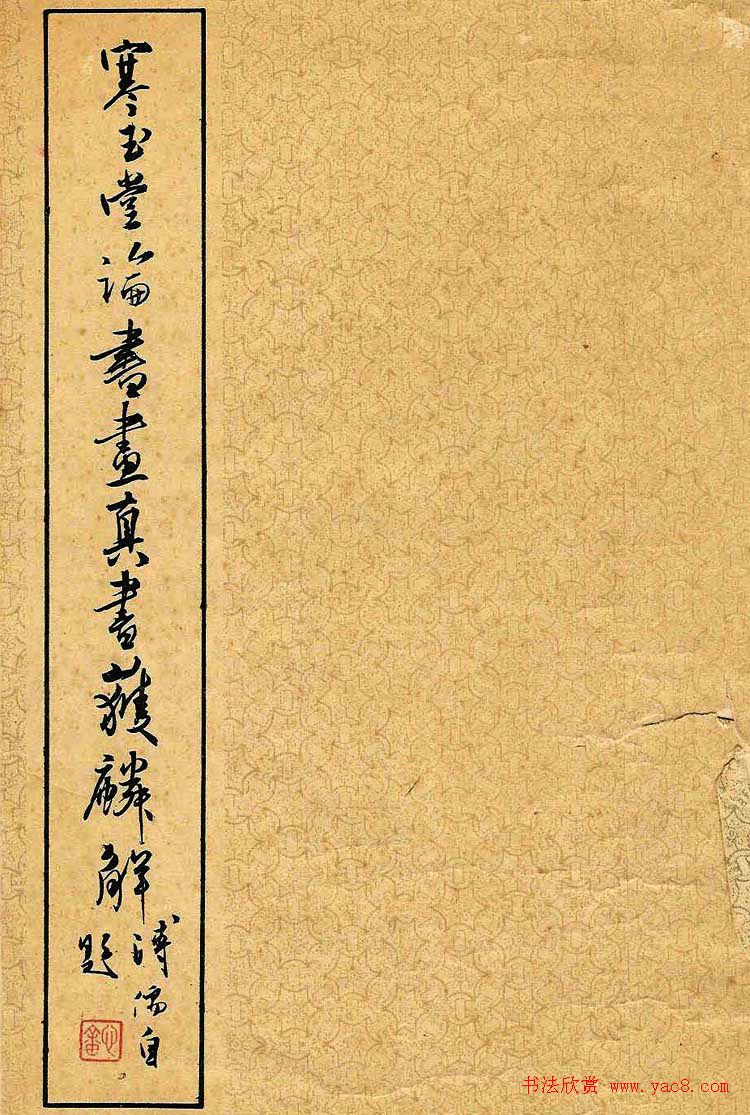 寒玉堂論書畫真書獲麟解
溥儒自
題
心畬
书法欣赏 www.yac8.com